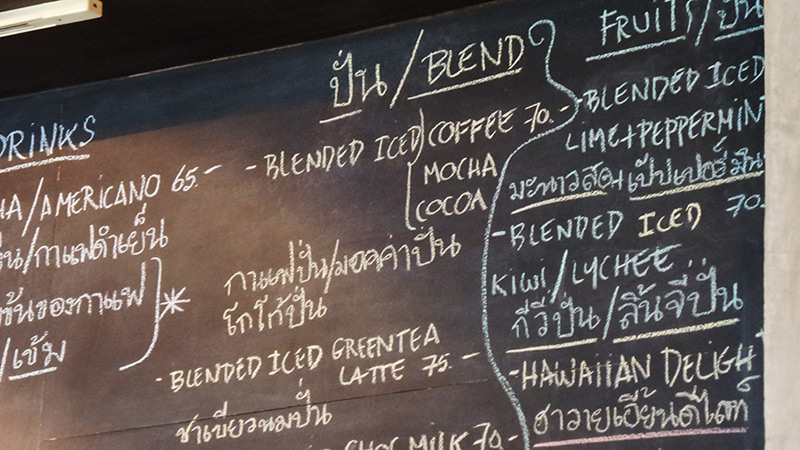 DRINKS
/AMERICANO 65.-
/กาแฟดำเย็น
ข้นของกาแฟ
/เข้ม
ปั่น/BLEND
- BLENDED ICED COFFEE 70.-
MOCHA
COCOA
กาแฟปั่น/มอคค่าปั่น
โกโก้ปั่น
- BLENDED ICED GREENTEA
LATTE 75.-
ชาเขียวนมปั่น
MILK 70.-
FRUITS/ปั่น
- BLENDED ICED
LIME+PEPPERMIN
มะนาวสด+เป๊ปเปอร์มิน
- BLENDED ICED 70.
KIWI/LYCHEE
กีวีปั่น/ลิ้นจี่ปั่น
- HAWAIIAN DELIGH
ฮาวายเอี้ยนดีไลท์